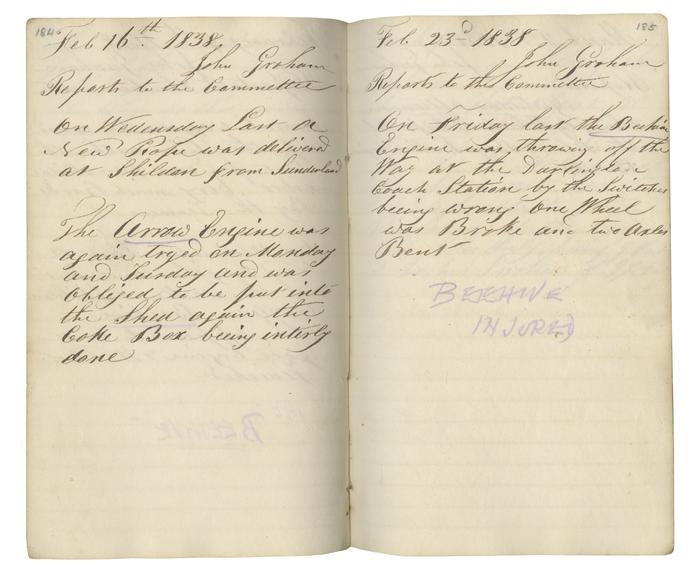 184
Feb 16th 1838
John Graham
Reports to the Committee
On Wedensday Last a
New Rope was delivered
at Shildon from Sunderland
The Arrow Engine was
again tryed on Monday
and Tusday and was
obliged to be put into
the Shed again the
Coke Box being intirly
done
BEEHIVE
185
Feb 23d 1838
John Graham
Reports to the Committee
On Friday last the Beehive
Engine was throwing off the
Way at the Darlington
Coach Station by the Switches
being wrong One Wheel
was Broke and two Axles
Bent
BEEHIVE
INJURED